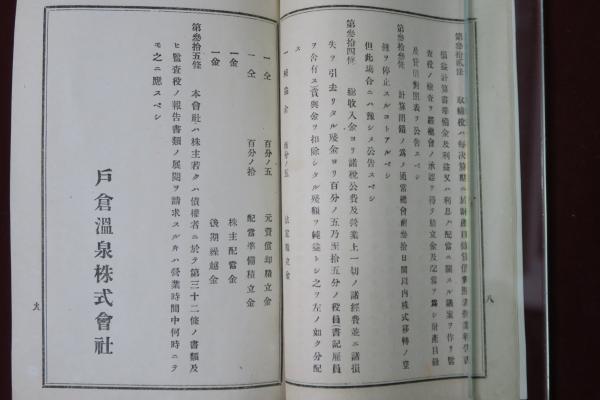 第參拾貳條 取締役ハ每決算期ニ於テ財產目錄貸借對照表事業報吿書
損益計算書準備金及利益又ハ利息ノ配當ニ關スル議案ヲ作リ監
査役ノ檢査ヲ經總會ノ承認ヲ得テ積立金及配當ヲ爲シ財產目錄
及貸借對照表ヲ公告スベシ
第參拾參條 計算閉鎖ノ爲メ通常總會前參拾日間以內株式移轉ノ登
錄ヲ停止スルコトアルベシ
但此場合ニハ豫シメ公告スベシ
第參拾四條 總收入金ヨリ諸稅公費及營業上一切ノ諸經費並ニ諸損
失ヲ引去リタル殘金ヨリ百分ノ五乃至拾五分ノ役員書記雇員
ヲ含有ス賞與金ヲ扣除シタル殘額ヲ純益トシ之ヲ左ノ如ク分配
ス
一純益金 百分ノ五 法定積立金
一仝 百分ノ五 元資償却積立金
一仝 百分ノ拾 配當準備積立金
一金 株主配當金
一金 後期繰越金
第參拾五條 本會社ハ株主若クハ債權者ニ於テ第三十二條ノ書類及
ヒ監査役ノ報告書類ノ展閱ヲ請求スルトキハ營業時間中何時ニテ
モ之ニ應スベシ
戶倉溫泉株式會社
八
九